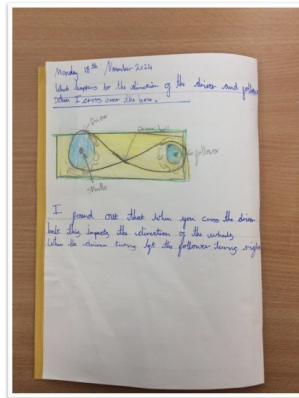 Monday 18th November 2024
What happens to the direction of the driver and follower
when I cross over the
Driver
Follower
I found out that when you cross the driver
belt this impacts the direction of the wheels
When the driver turns left the follower turns right